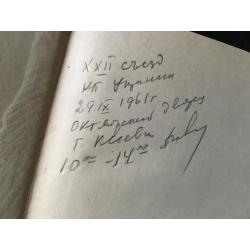 XXII съезд
КП Украины
29.IX 1961 г
Октябрьский дворец
г. Киев
10⁰⁰ - 14⁰⁰